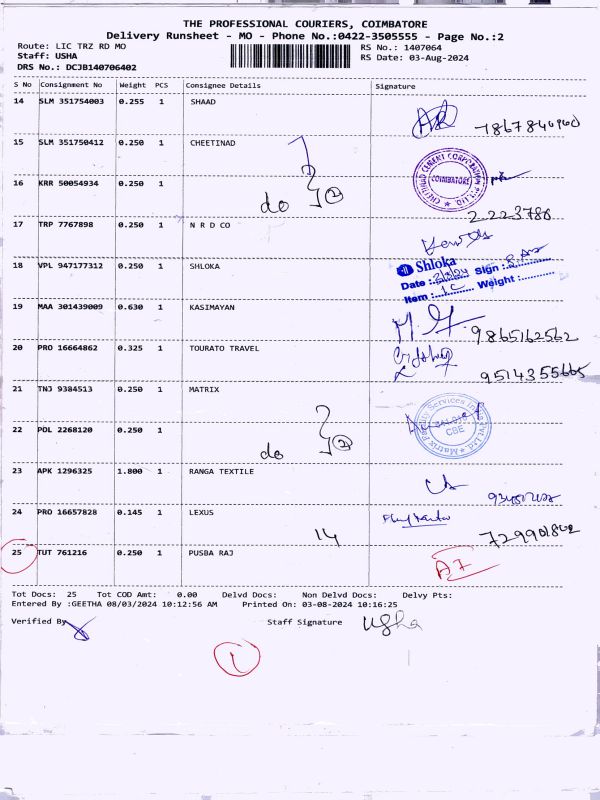 THE PROFESSIONAL COURIERS, COIMBATORE
Delivery Runsheet - MO - Phone No.:0422-3505555 - Page No.:2
Route: LIC TRZ RD MO RS No.: 1407064
Staff: USHA RS Date: 03-Aug-2024
DRS No.: DCJB140706402
S No Consignment No Weight PCS Consignee Details Signature
14 SLM 351754003 0.255 1 SHAAD
15 SLM 351750412 0.250 1 CHEETINAD
CHETTINAD CEMENT CORPORATION PVT. LTD. COIMBATORE
16 KRR 50054934 0.250 1 do 2
17 TRP 7767898 0.250 1 N R D CO 2223788
18 VPL 947177312 0.250 1 SHLOKA
Shloka
Date : 3/8/24 Sign :
Item : Weight :
19 MAA 301439009 0.630 1 KASIMAYAN 9865162562
20 PRO 16664862 0.325 1 TOURATO TRAVEL 9514355665
21 TNJ 9384513 0.250 1 MATRIX
Matrix Facility Services India Pvt Ltd. CBE
22 POL 2268120 0.250 1 do 2
23 APK 1296325 1.800 1 RANGA TEXTILE
24 PRO 16657828 0.145 1 LEXUS
14
25 TUT 761216 0.250 1 PUSBA RAJ
Tot Docs: 25 Tot COD Amt: 0.00 Delvd Docs: Non Delvd Docs: Delvy Pts:
Entered By :GEETHA 08/03/2024 10:12:56 AM Printed On: 03-08-2024 10:16:25
Verified By Staff Signature Usha
1